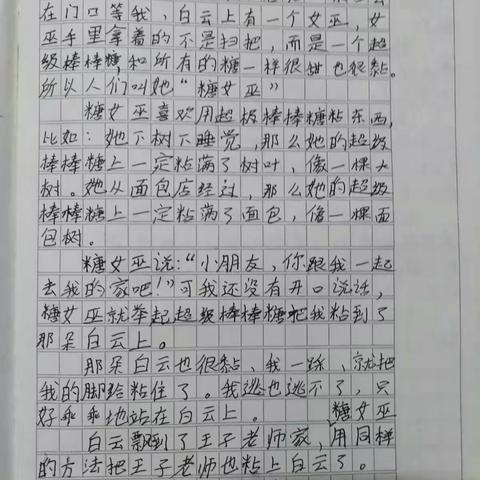 在门口等我，白云上有一个女巫，女
巫手里拿着的不是扫把，而是一个超
级棒棒糖，和所有的糖一样很甜也很黏。
所以人们叫她“糖女巫”
糖女巫喜欢用超级棒棒糖粘东西，
比如：她在树下睡觉，那么她的超级
棒棒糖上一定粘满了树叶，像一棵大
树。她从面包店经过，那么她的超级
棒棒糖上一定粘满了面包，像一棵面
包树。
糖女巫说：“小朋友，你跟我一起
去我的家吧！”可我还没有开口说话，
糖女巫就举起超级棒棒糖把我粘到了
那朵白云上。
那朵白云也很黏，我一踩，就把
我的脚给粘住了。我逃也逃不了，只
好乖乖地站在白云上。
糖女巫
白云飘到了王子老师家，用同样
的方法把王子老师也粘上白云了。